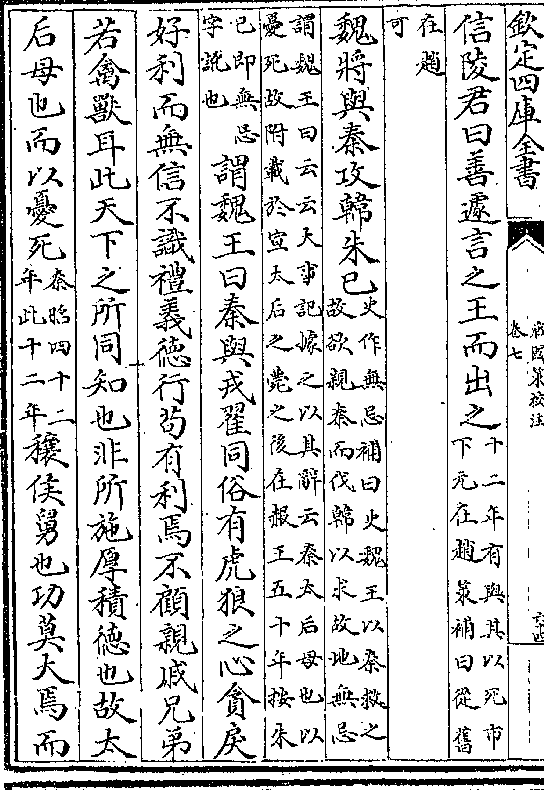 欽定四庫全書
戰國策校注
卷七
信陵君曰善遽言之王而出之十二年有與其以死市
下元在趙策補曰從舊
在趙
可
魏將與秦攻韓朱已史作無忌補曰史魏王以秦救之
故欲親秦而伐韓以求故地無忌
謂魏王曰云云大事記據之以其辭云秦太后母也以
憂死故附載於宣太后之薨之後在赧王五十年按朱
已即無忌
字訛也
謂魏王曰秦與戎翟同俗有虎狼之心貪戾
好利而無信不識禮義德行苟有利焉不顧親戚兄弟
若禽獸耳此天下之所同知也非所施厚積德也故太
后母也而以憂死秦昭四十二
年此十二年
穰侯舅也功莫大焉而